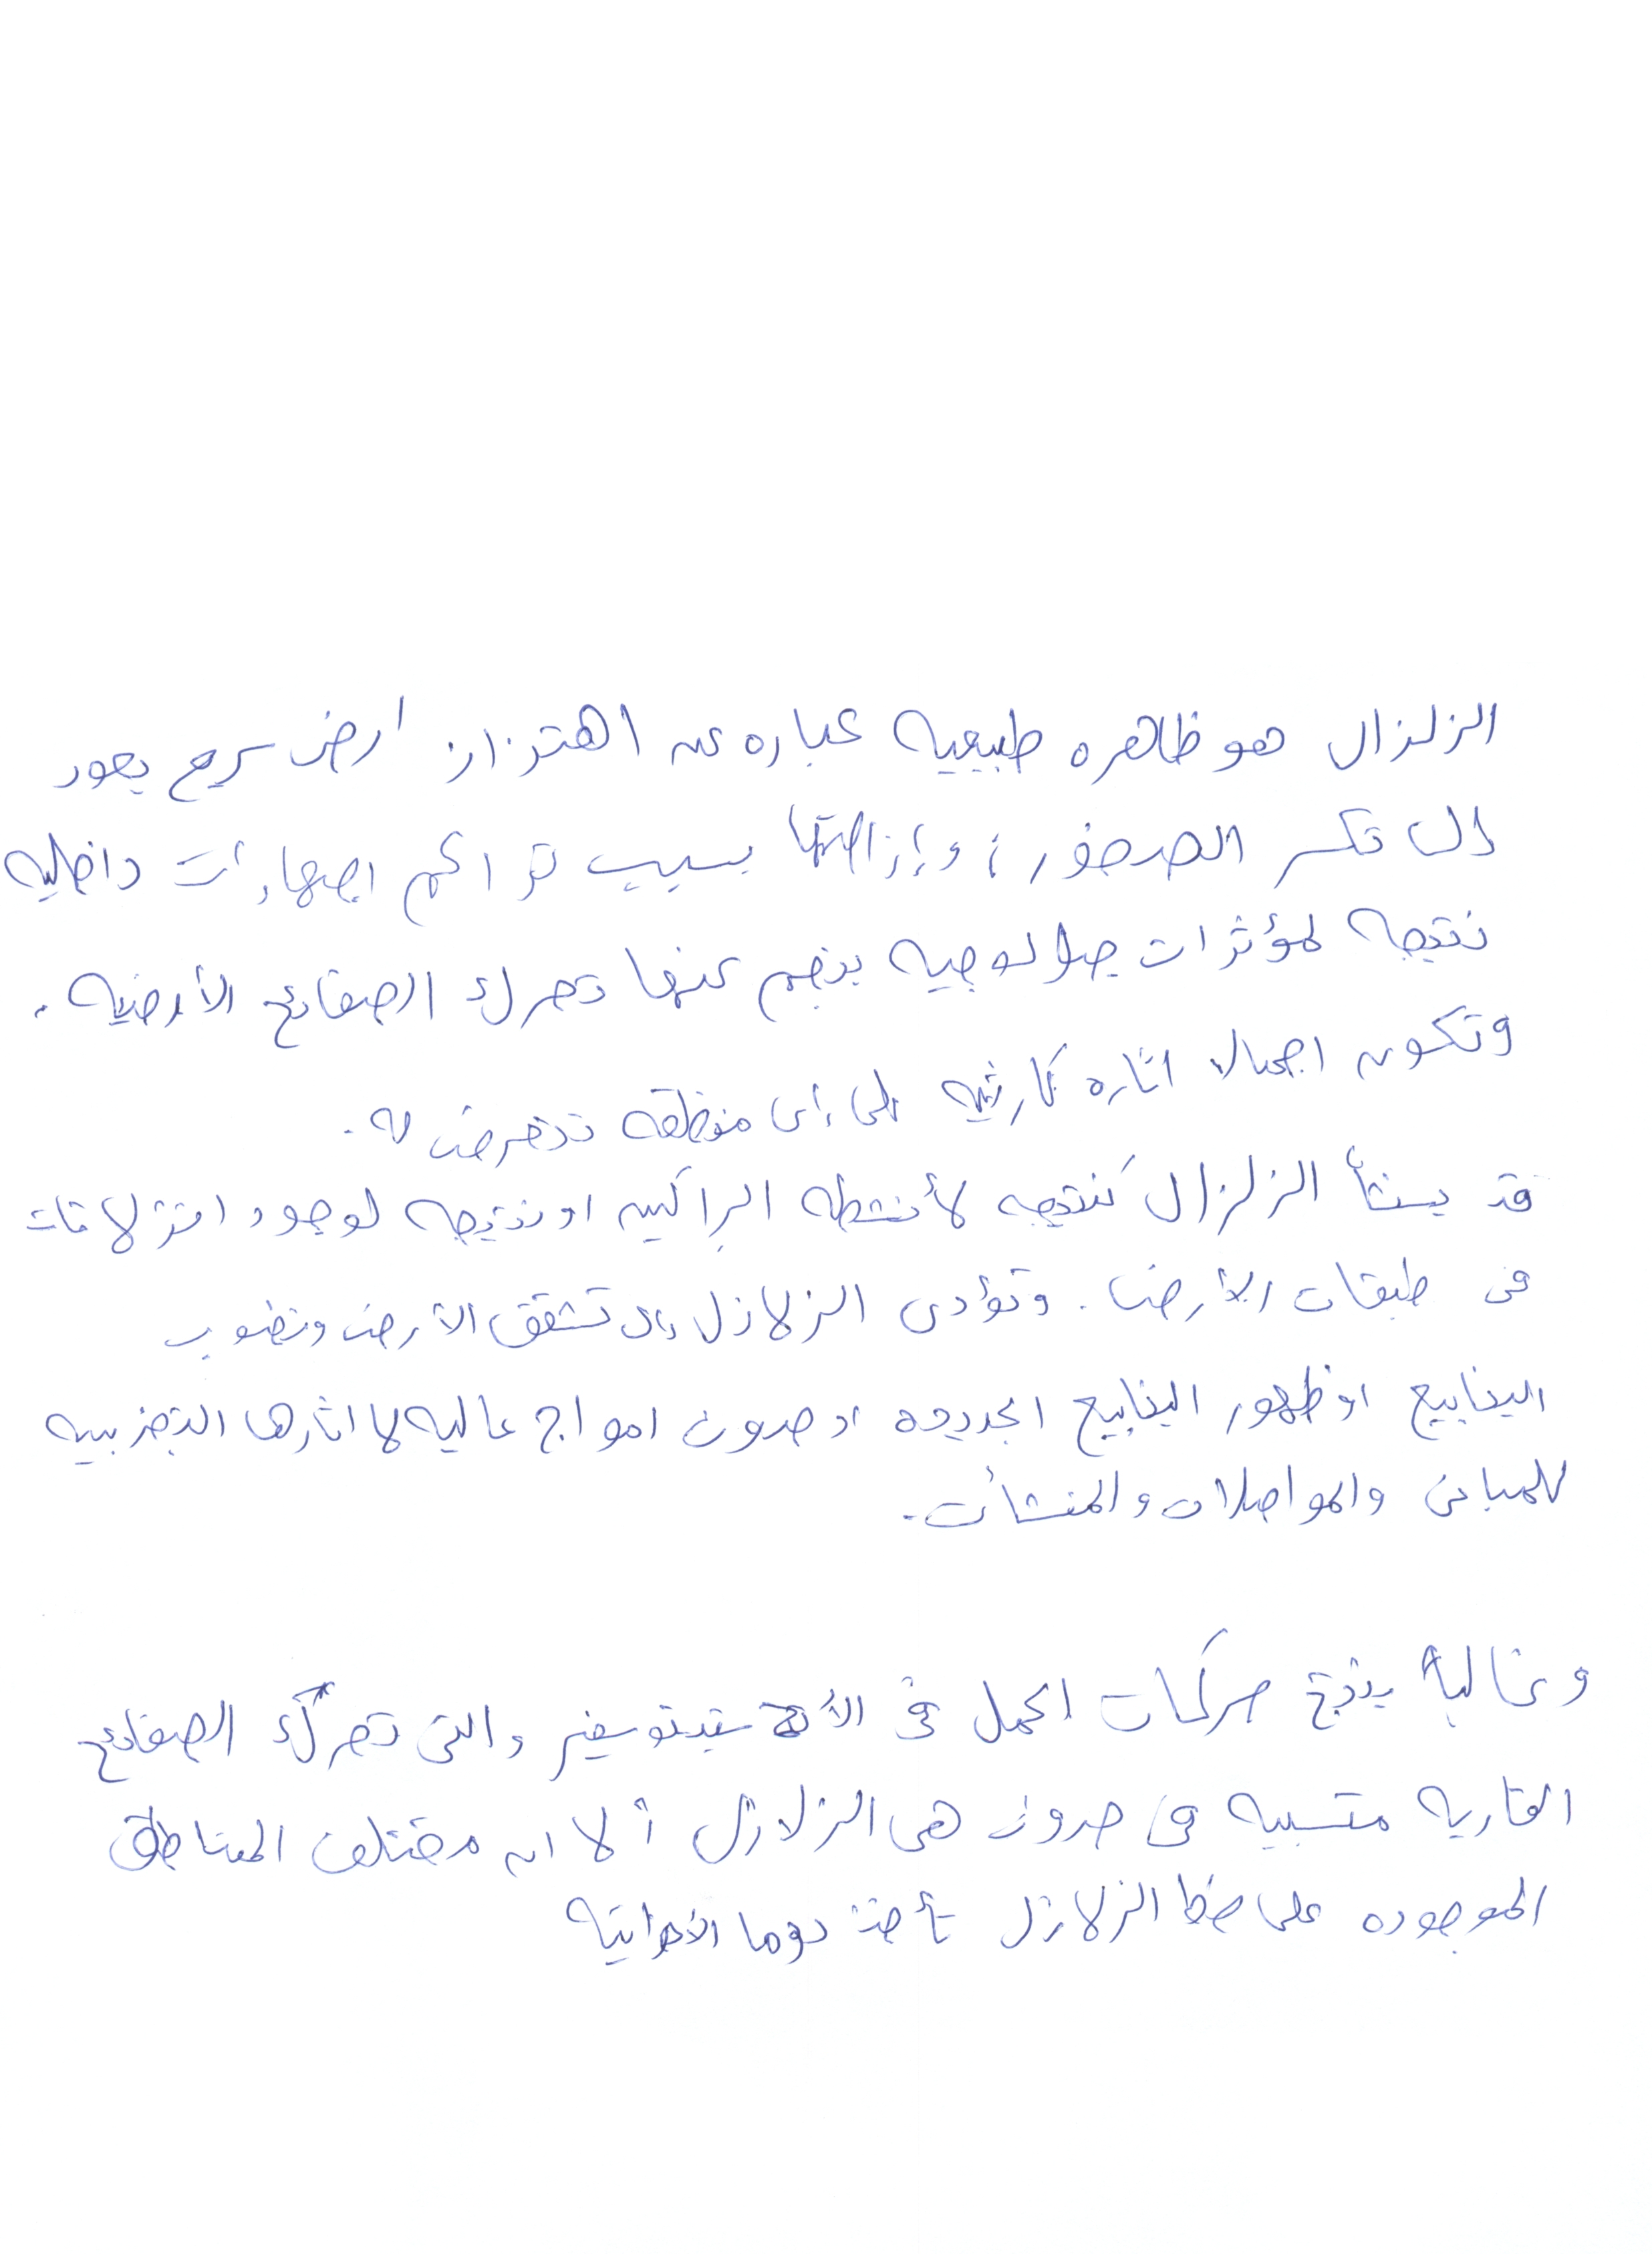 الزلزال هو ظاهره طبيعيه عباره عن اهتزاز ارض سريع يعود
الى تكسر الصخور، وإزاحتها بسبب تراكم اجهادات داخليه
نتيجه لمؤثرات جيولوجيه ينجم عنها تحرك الصفائح الأرضيه.
وتكون اجمالا اثاره كارثيه على أى منطقه تتعرض له.
قد ينشأ الزلزال كنتيجه لأنشطه البراكين او نتيجه لوجود انزلاقات
فى طبقات الأرض. وتؤدى الزلازل إلى تشقق الأرض ونضوب
الينابيع او ظهور الينابيع الجديده او حدوث امواج عاليه لا اثارها التخريبيه
للمبانى والمواصلات والمنشأت.
وغالبا ينتج حركات الحمل فى الأستينوسفير والتى تحرك الصفائح
القاريه متسببه فى حدوث هى الزلازل ألا ان مختلف المناطق
الموجوده على خط الزلازل تأخذ دوما الأحوانيه